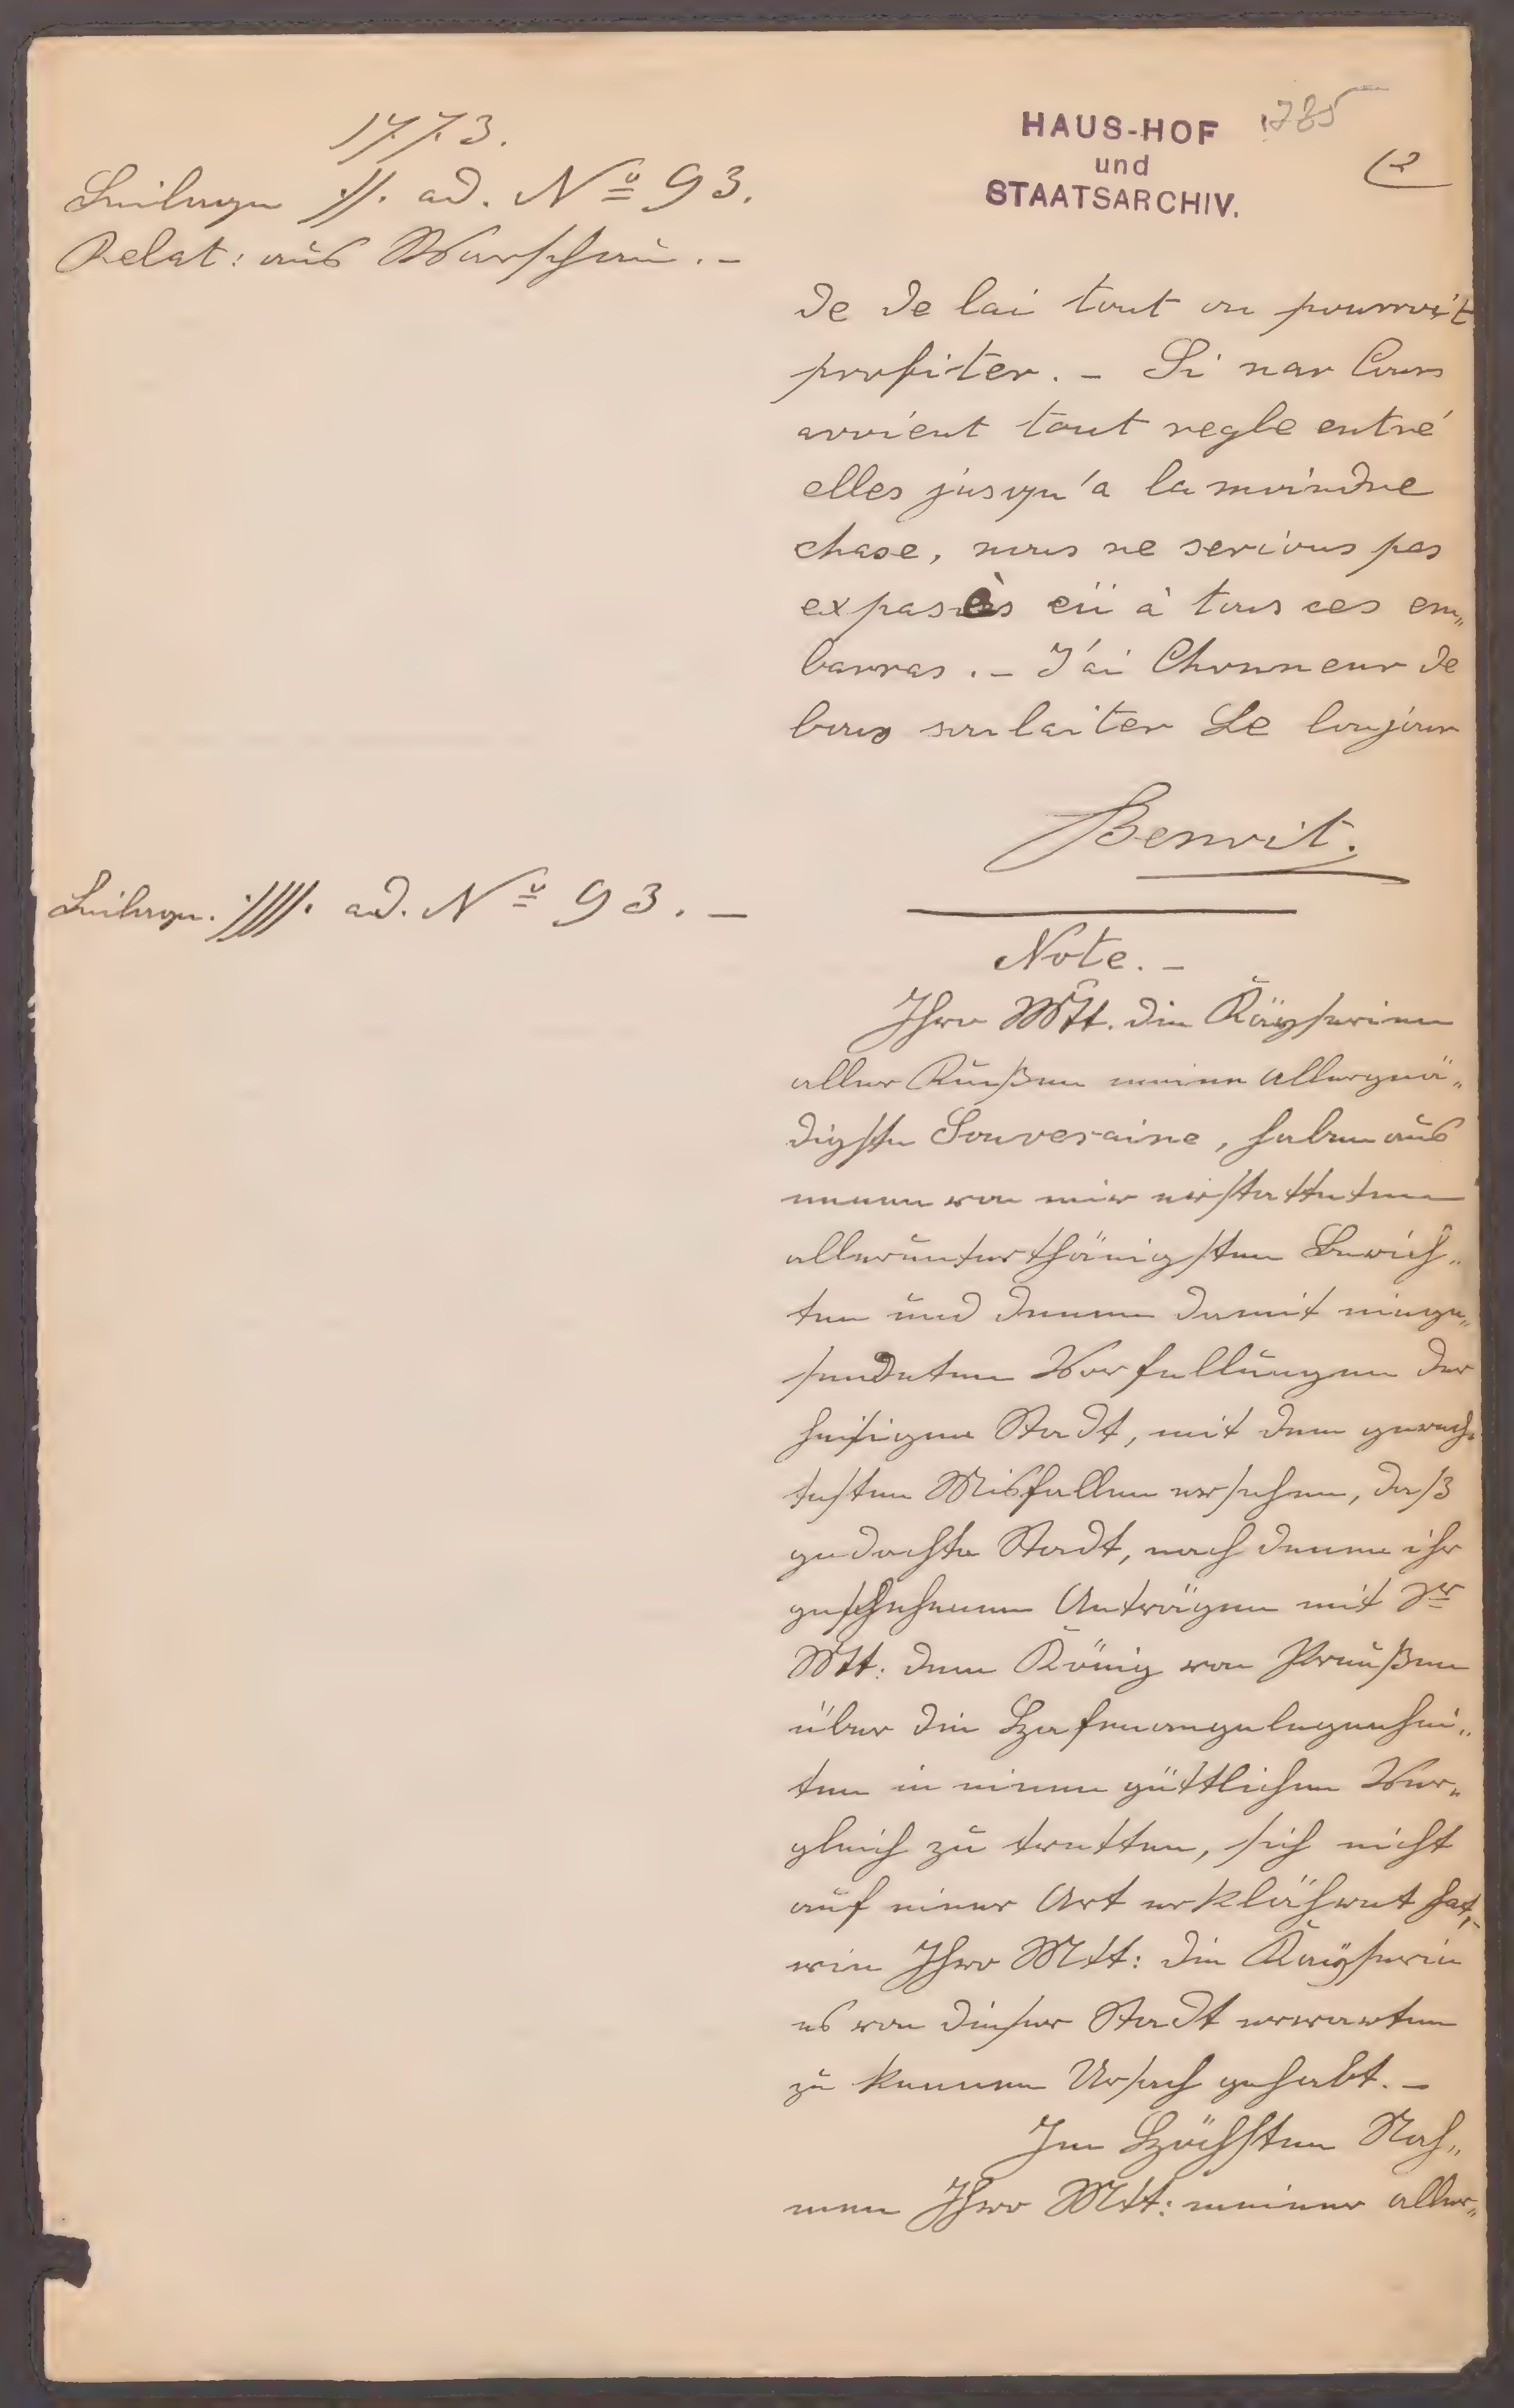 1773.
Beilage //. ad. No 93.
Relat: aus Warschau. -
HAUS-HOF
und
STAATSARCHIV.
785
de de lai tout on pourroit
profiter. - Si nar Cours
avvient tout regle entré
elles jusqu'a la moindre
chase, nous ne serious pas
exposès eü à tous ces em„
barras. - J'ai Chonneur de
vous soulaiter Le bonjour
Benoit.
Beilage. ////. ad. No 93. -
Note. -
Ihro Mtt. die Käyserinn
aller Rußen meine Allergnä„
digste Souveraine, haben aus
denen von mir erstatteten
allerunterthänigsten Berich„
ten und denen damit einge„
sendeten Vorfellungen der
hiesigen Stadt, mit dem gerech„
testen Misfallen ersehen, daß
gedachte Stadt, nach denen ihr
geschehenen Anträgen mit Sr
Mtt: dem König von Preußen
über die Hafenangelegenhei„
ten in einen güttlichen Ver„
gleich zu tretten, sich nicht
auf einer Art erklähret hat,
wie Ihro Mtt: die Kaÿserin
es von dieser Stadt erwarten
zu kennen Ursach gehabt. -
Im Höchsten Nah„
men Ihro Mtt: meiner aller„